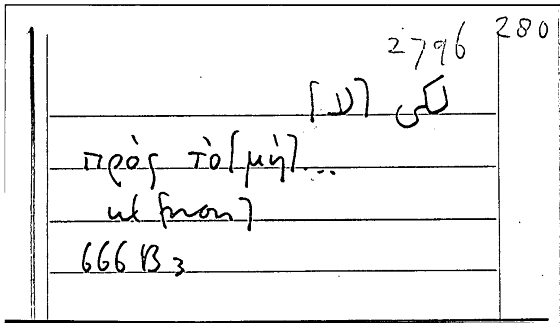 2796 280
لكى [لا]
πρὸς τὸ [μὴ]...
ut [non]
666 B 3